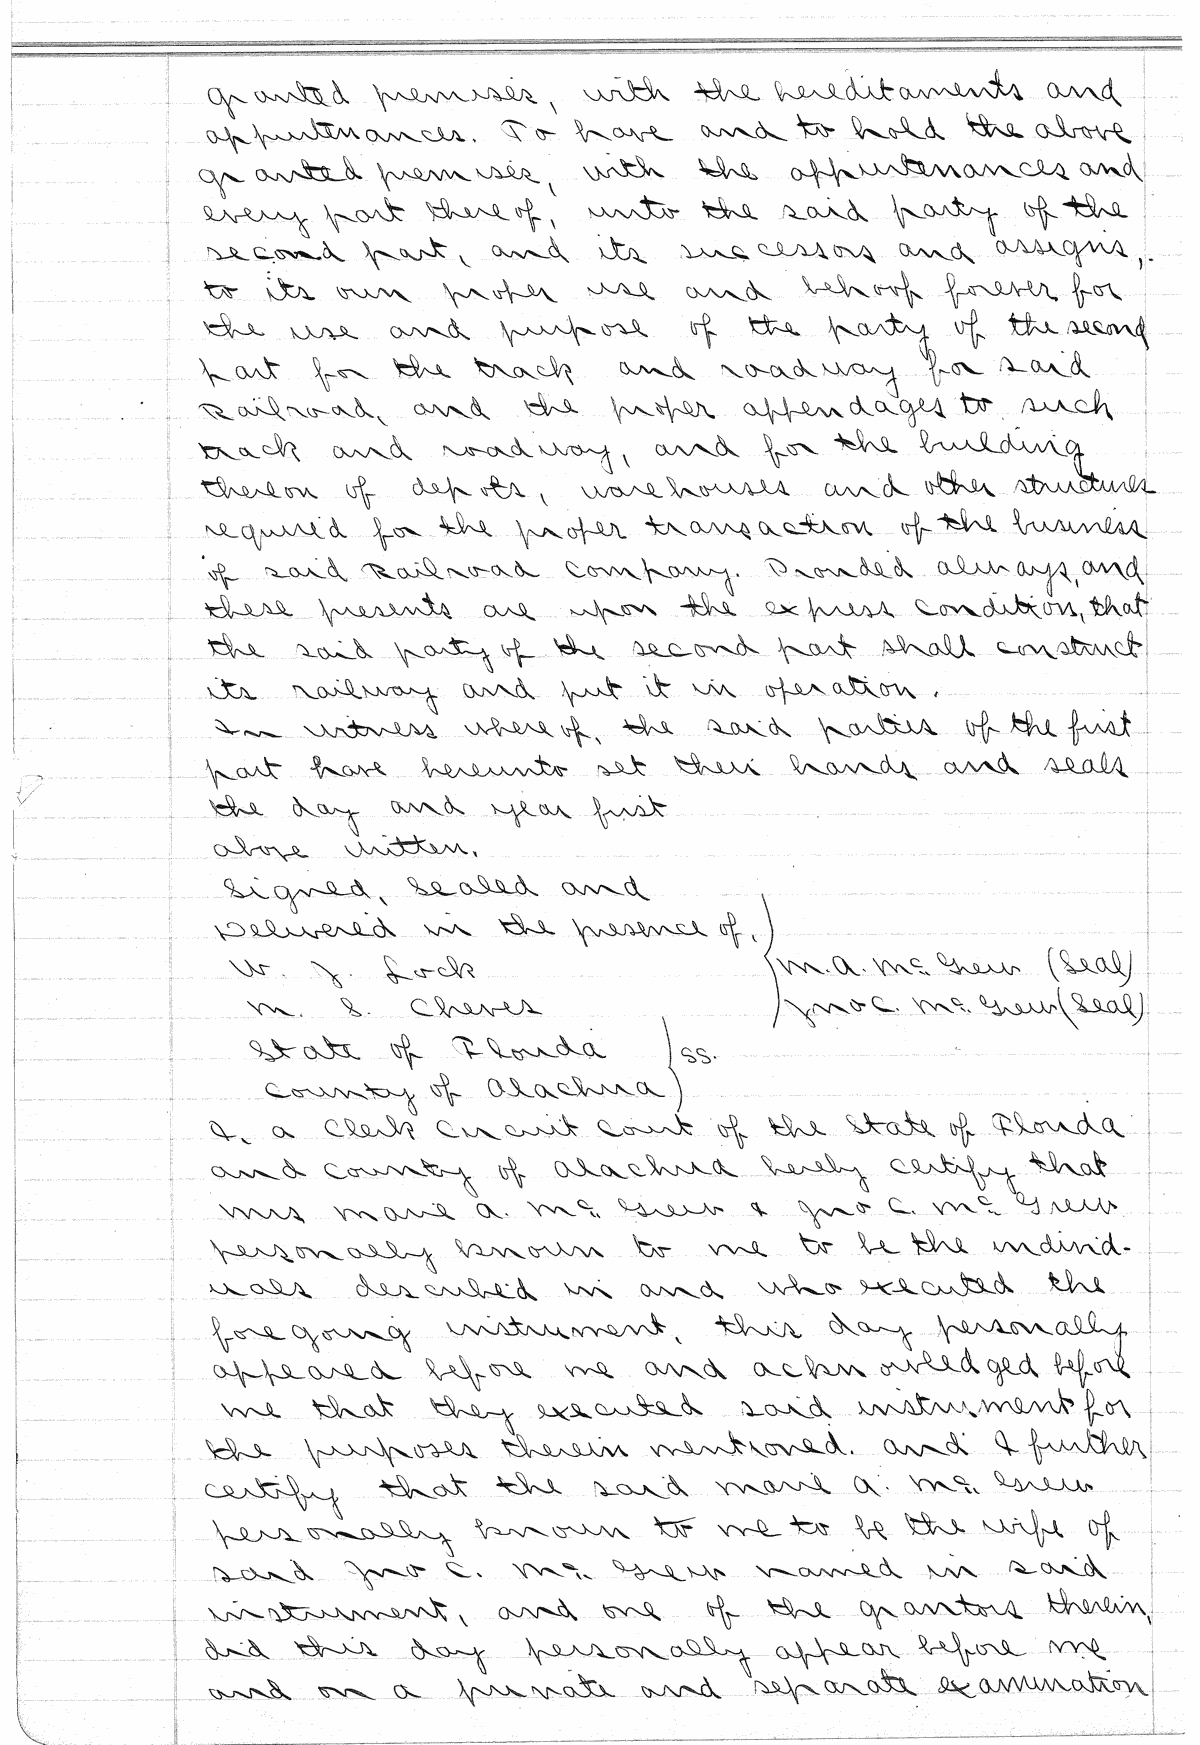 granted premises, with the hereditaments and
appurtenances. To have and to hold the above
granted premises, with the appurtenances and
every part thereof, unto the said party of the
second part, and its successors and assigns,
to its own proper use and behoof forever for
the use and purpose of the party of the second
part for the track and roadway for said
Railroad, and the proper appendages to such
track and roadway, and for the building
thereon of depots, warehouses and other structures
required for the proper transaction of the business
of said Railroad Company. Provided always, and
these presents are upon the express condition, that
the said party of the second part shall construct
its railway and put it in operation.
In witness whereof, the said parties of the first
part have hereunto set their hands and seals
the day and year first
above written.
Signed, Sealed and
Delivered in the presence of,
W. J. Lock } M. A. McGrew (Seal)
M. S. Cheves } Jno C. McGrew (Seal)
State of Florida } ss.
County of Alachua }
I, a Clerk Circuit Court of the State of Florida
and County of Alachua hereby certify that
Mrs Marie A. McGrew & Jno C. McGrew
personally known to me to be the individ-
uals described in and who executed the
foregoing instrument, this day personally
appeared before me and acknowledged before
me that they executed said instrument for
the purposes therein mentioned. and I further
certify that the said Marie A. McGrew
personally known to me to be the wife of
said Jno C. McGrew named in said
instrument, and one of the grantors therein,
did this day personally appear before me
and on a private and separate examination